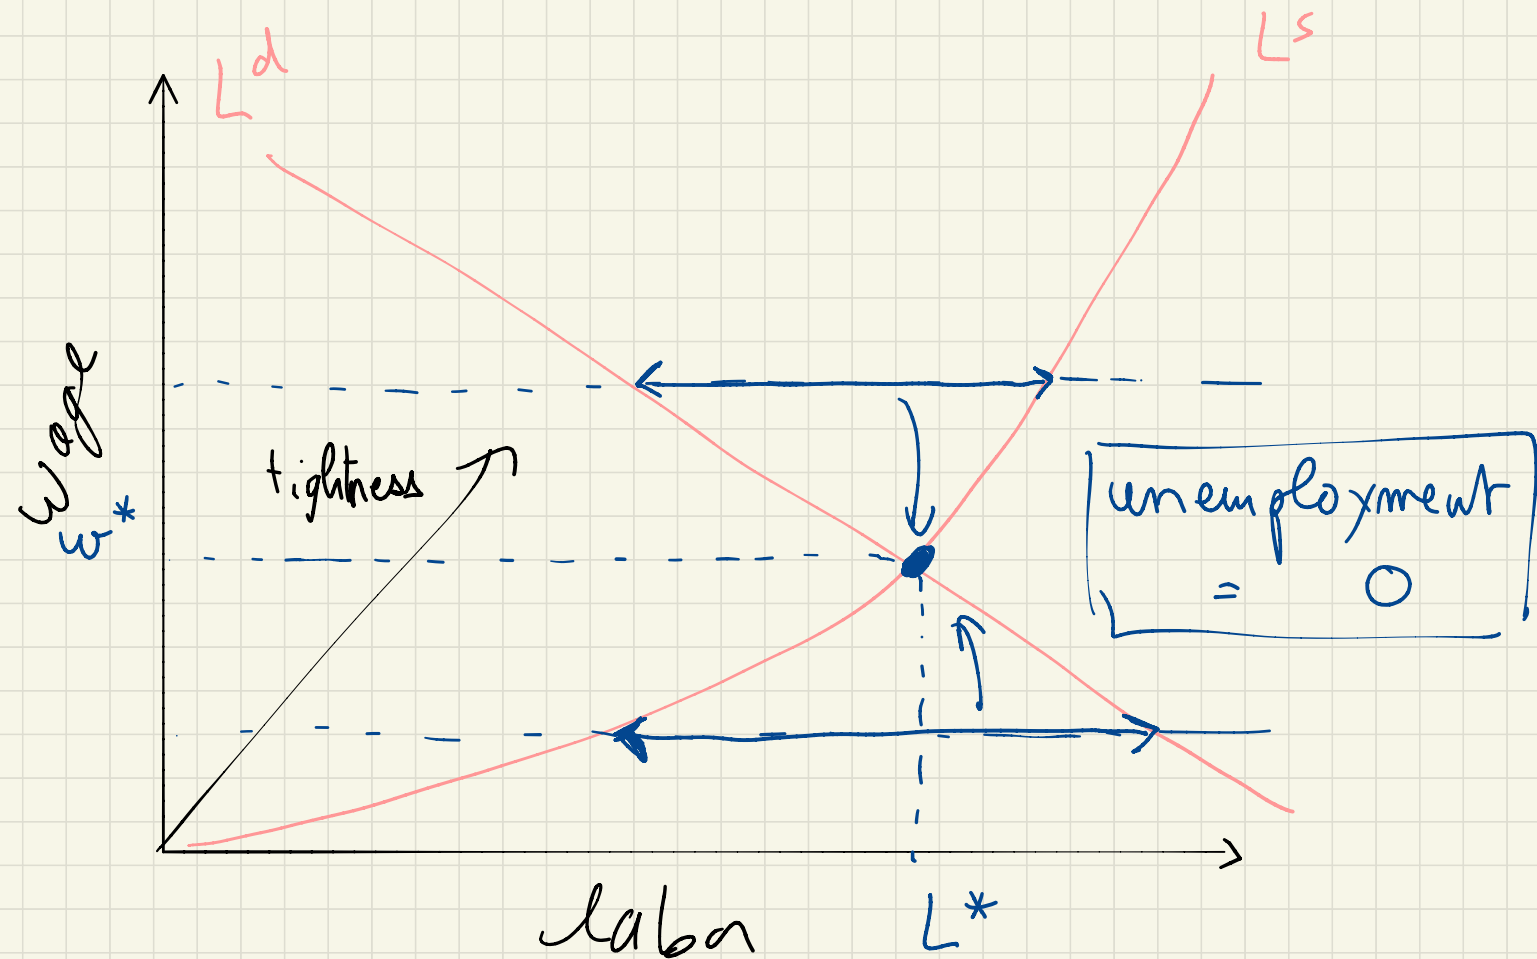 L^d
L^s
wage
w*
tightness
unemployment
= 0
labor
L*